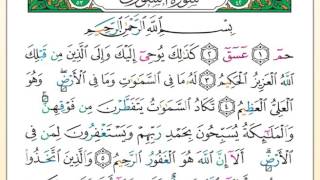 سورة الشورى
بِسْمِ ٱللَّهِ ٱلرَّحْمَٰنِ ٱلرَّحِيمِ
حمٓ ١ عٓسٓقٓ ٢ كَذَٰلِكَ يُوحِىٓ إِلَيْكَ وَإِلَى ٱلَّذِينَ مِن قَبْلِكَ
ٱللَّهُ ٱلْعَزِيزُ ٱلْحَكِيمُ ٣ لَهُۥ مَا فِى ٱلسَّمَٰوَٰتِ وَمَا فِى ٱلْأَرْضِ ۖ وَهُوَ
ٱلْعَلِىُّ ٱلْعَظِيمُ ٤ تَكَادُ ٱلسَّمَٰوَٰتُ يَتَفَطَّرْنَ مِن فَوْقِهِنَّ ۚ
وَٱلْمَلَٰٓئِكَةُ يُسَبِّحُونَ بِحَمْدِ رَبِّهِمْ وَيَسْتَغْفِرُونَ لِمَن فِى
ٱلْأَرْضِ ۗ أَلَآ إِنَّ ٱللَّهَ هُوَ ٱلْغَفُورُ ٱلرَّحِيمُ ٥ وَٱلَّذِينَ ٱتَّخَذُوا۟